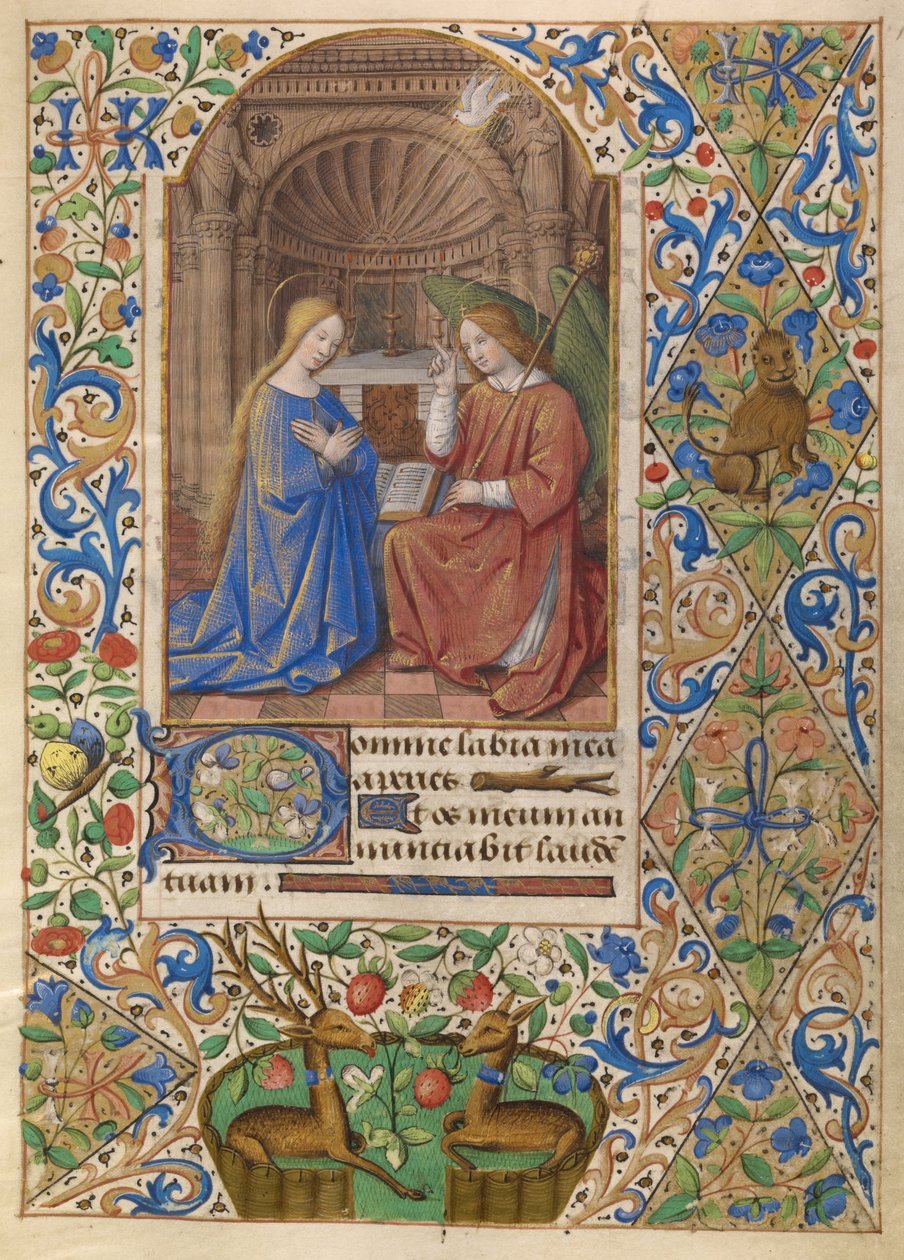 IK
IK
Domine labia mea
aperies.
Et os meum an
nunciabit laudē
tuam.